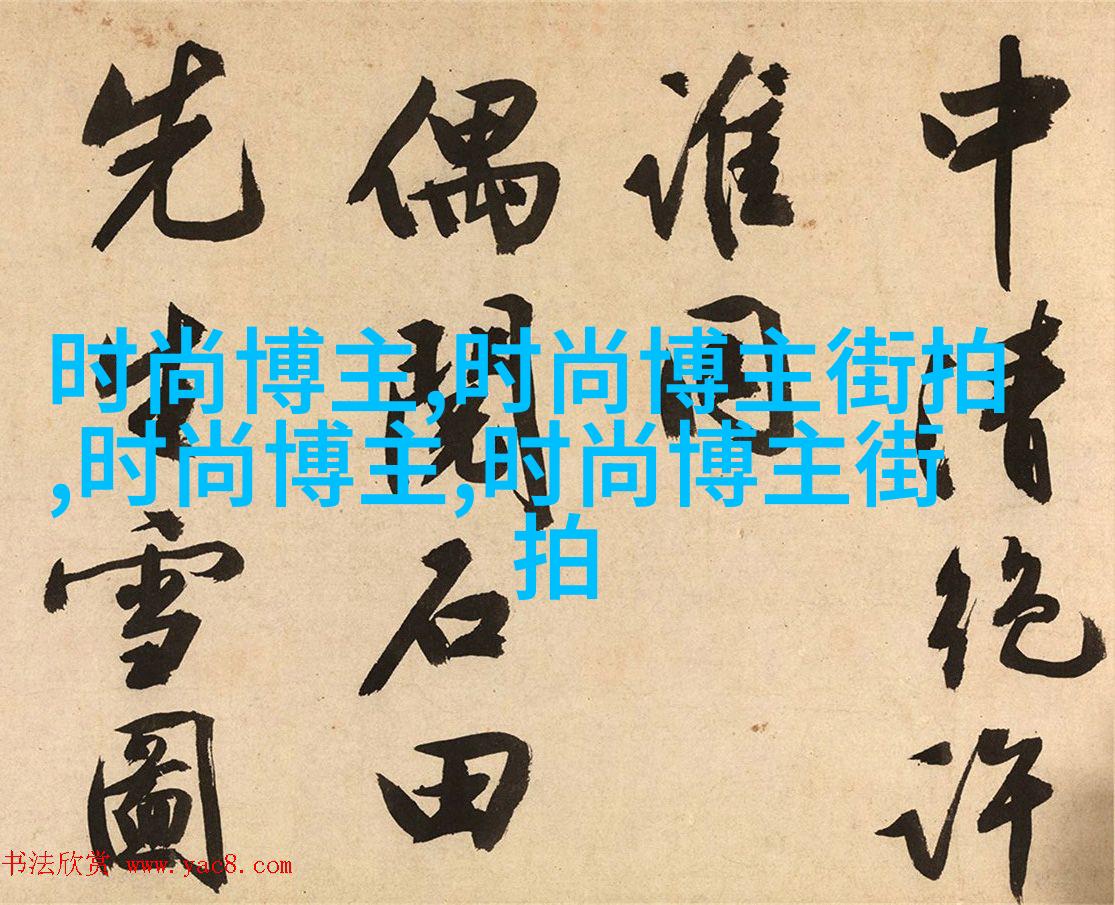 中清绝许
谁同
偶閱石田
先生雪圖
时尚博主,时尚博主街拍
,时尚博主,时尚博主街
拍
书法欣赏 www.yac8.com